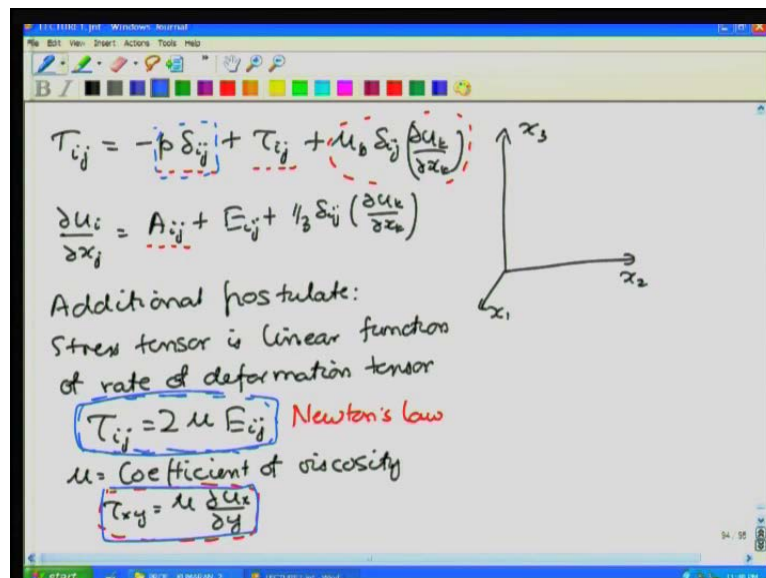 LECTURE 1.jnt - Windows Journal
File Edit View Insert Actions Tools Help
B I
T_ij = -p δ_ij + τ_ij + μ_b δ_ij (∂u_k/∂x_k)
x_3
∂u_i/∂x_j = A_ij + E_ij + 1/3 δ_ij (∂u_k/∂x_k)
x_2
x_1
Additional postulate:
Stress tensor is linear function
of rate of deformation tensor
τ_ij = 2 μ E_ij Newton's law
μ = Coefficient of viscosity
τ_xy = μ ∂u_x/∂y
start